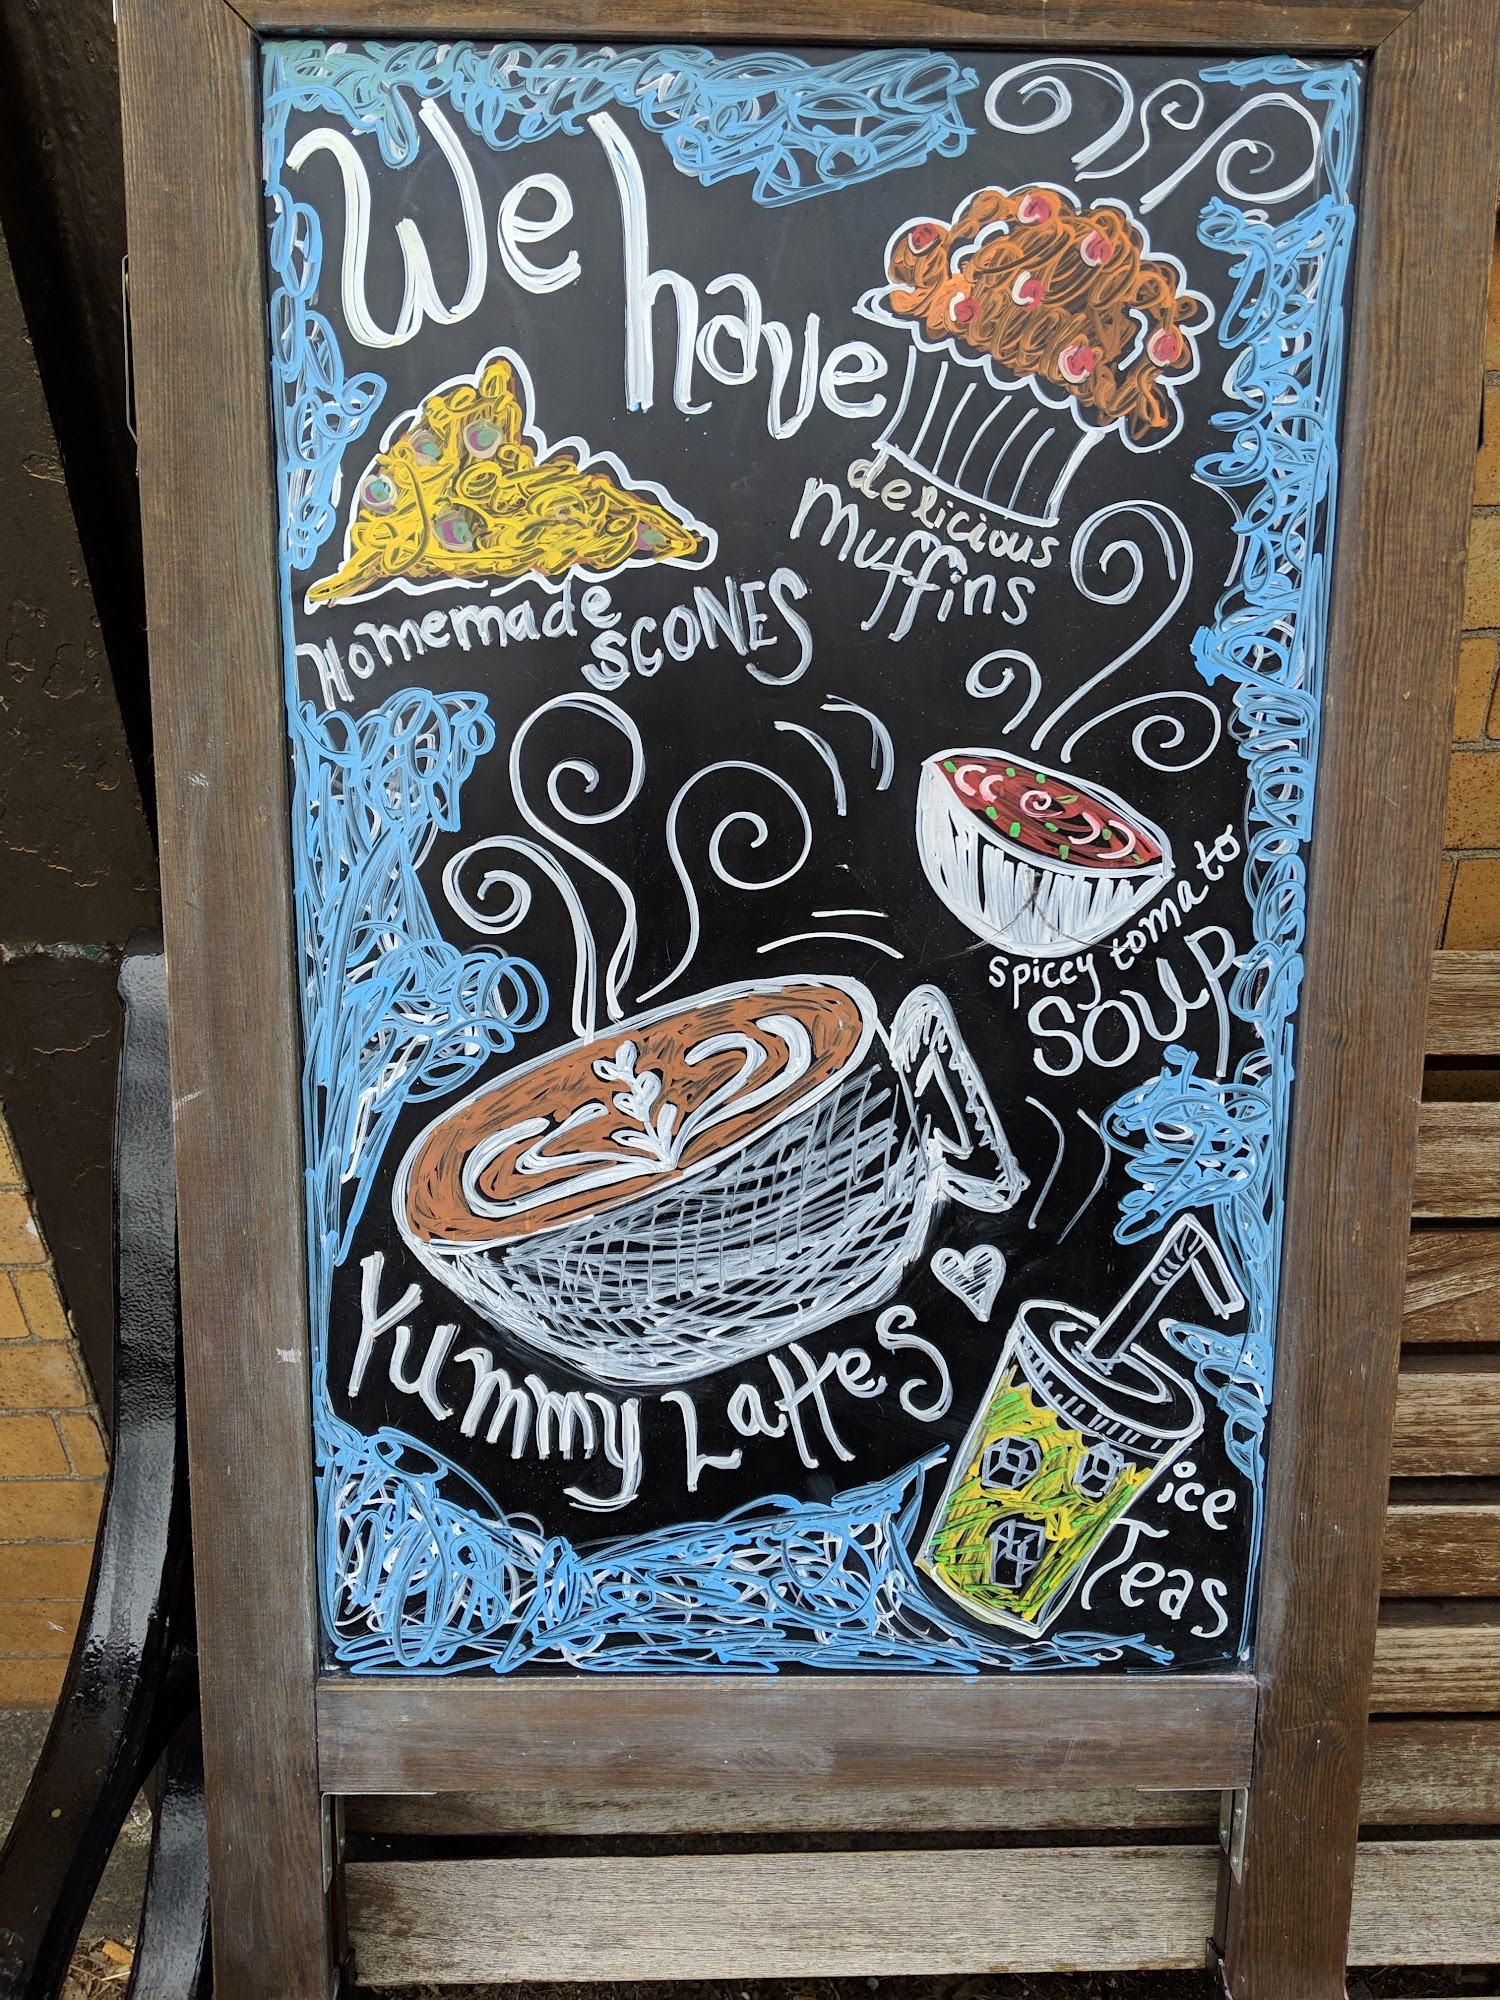 We have
Homemade SCONES
delicious
muffins
spicey tomato
SOUP
Yummy Lattes
ice
Teas